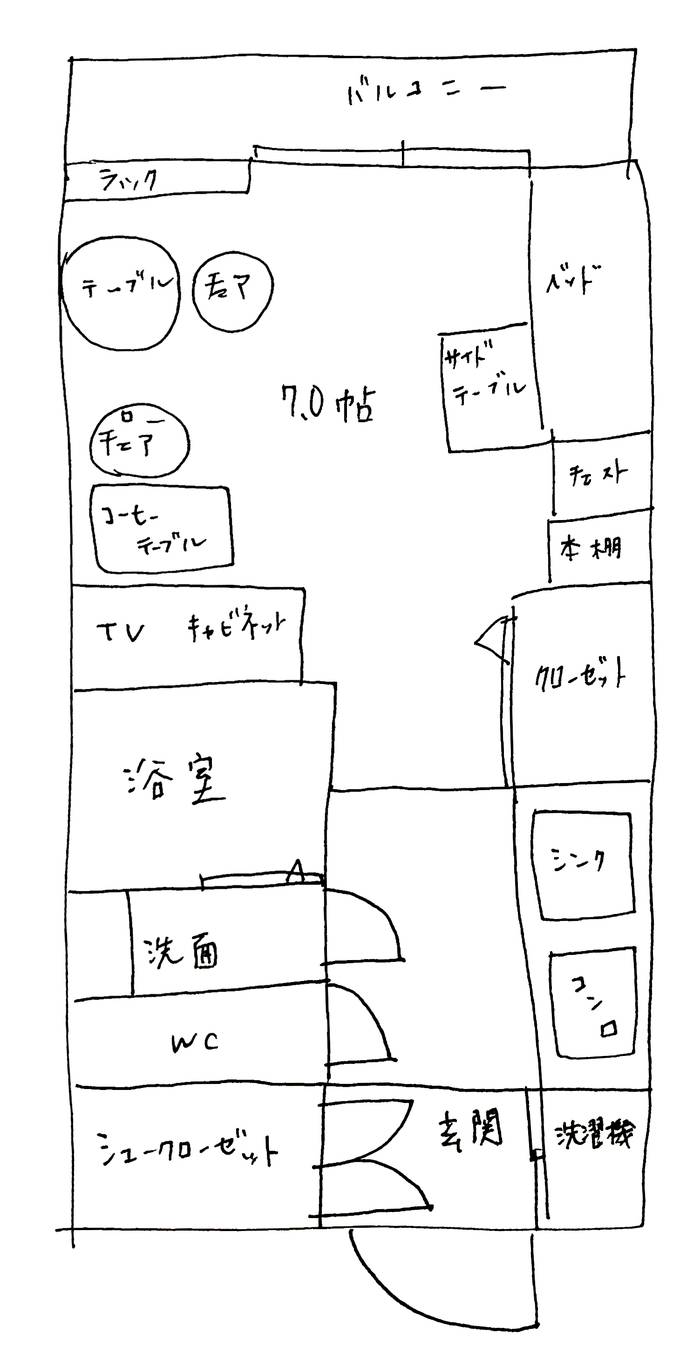 バルコニー
ラック
テーブル
チェア
ベッド
サイド
テーブル
7.0帖
ロー
チェア
コーヒー
テーブル
チェスト
本棚
TV キャビネット
クローゼット
浴室
シンク
洗面
コンロ
WC
シュークローゼット
玄関
洗濯機